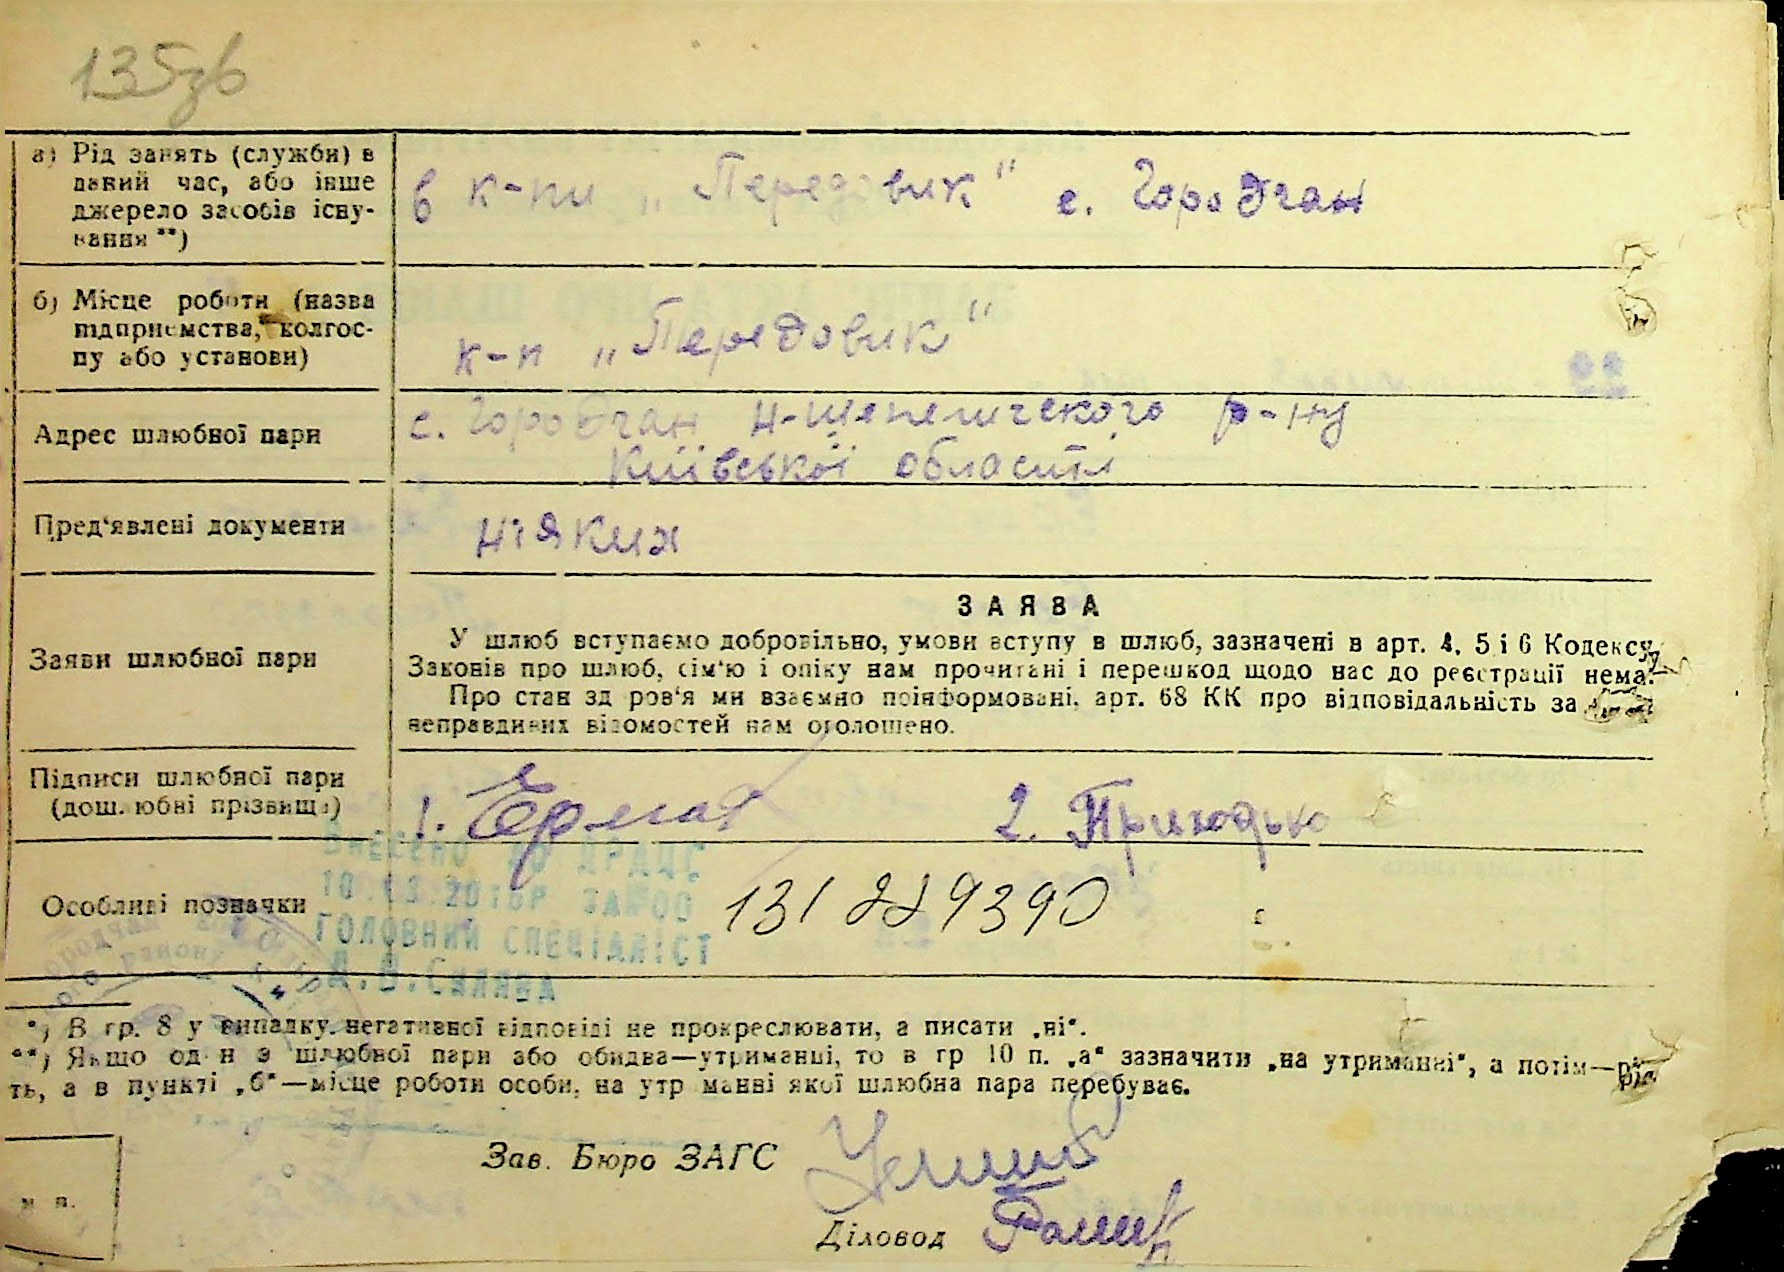 135зв
а) Рід занять (служби) в
даний час, або інше
джерело засобів існу-
вання **)
в к-пи „Передовик" с. Городчан
б) Місце роботи (назва
підприємства, колгос-
пу або установи)
к-п „Передовик"
Адрес шлюбної пари
с. Городчан Н-шепеличского р-ну
Київської області
Пред'явлені документи
ніяких
Заяви шлюбної пари
ЗАЯВА
У шлюб вступаємо добровільно, умови вступу в шлюб, зазначені в арт. 4, 5 і 6 Кодексу
Законів про шлюб, сім'ю і опіку нам прочитані і перешкод щодо нас до реєстрації нема.
Про стан здоров'я ми взаємно поінформовані, арт. 68 КК про відповідальність за
неправдивих відомостей нам оголошено.
Підписи шлюбної пари
(дошлюбні прізвища)
1. Ермак 2. Приходько
Особливі позначки
131 229390
Внесено до ДРАЦС
ГОЛОВНИЙ СПЕЦІАЛІСТ
*) В гр. 8 у випадку негативної відповіді не прокреслювати, а писати „ні".
**) Якщо один з шлюбної пари або обидва—утриманці, то в гр 10 п. „а" зазначити „на утриманні", а потім—рід
ть, а в пункті „б"—місце роботи особи, на утриманні якої шлюбна пара перебуває.
Зав. Бюро ЗАГС
Діловод
м п.